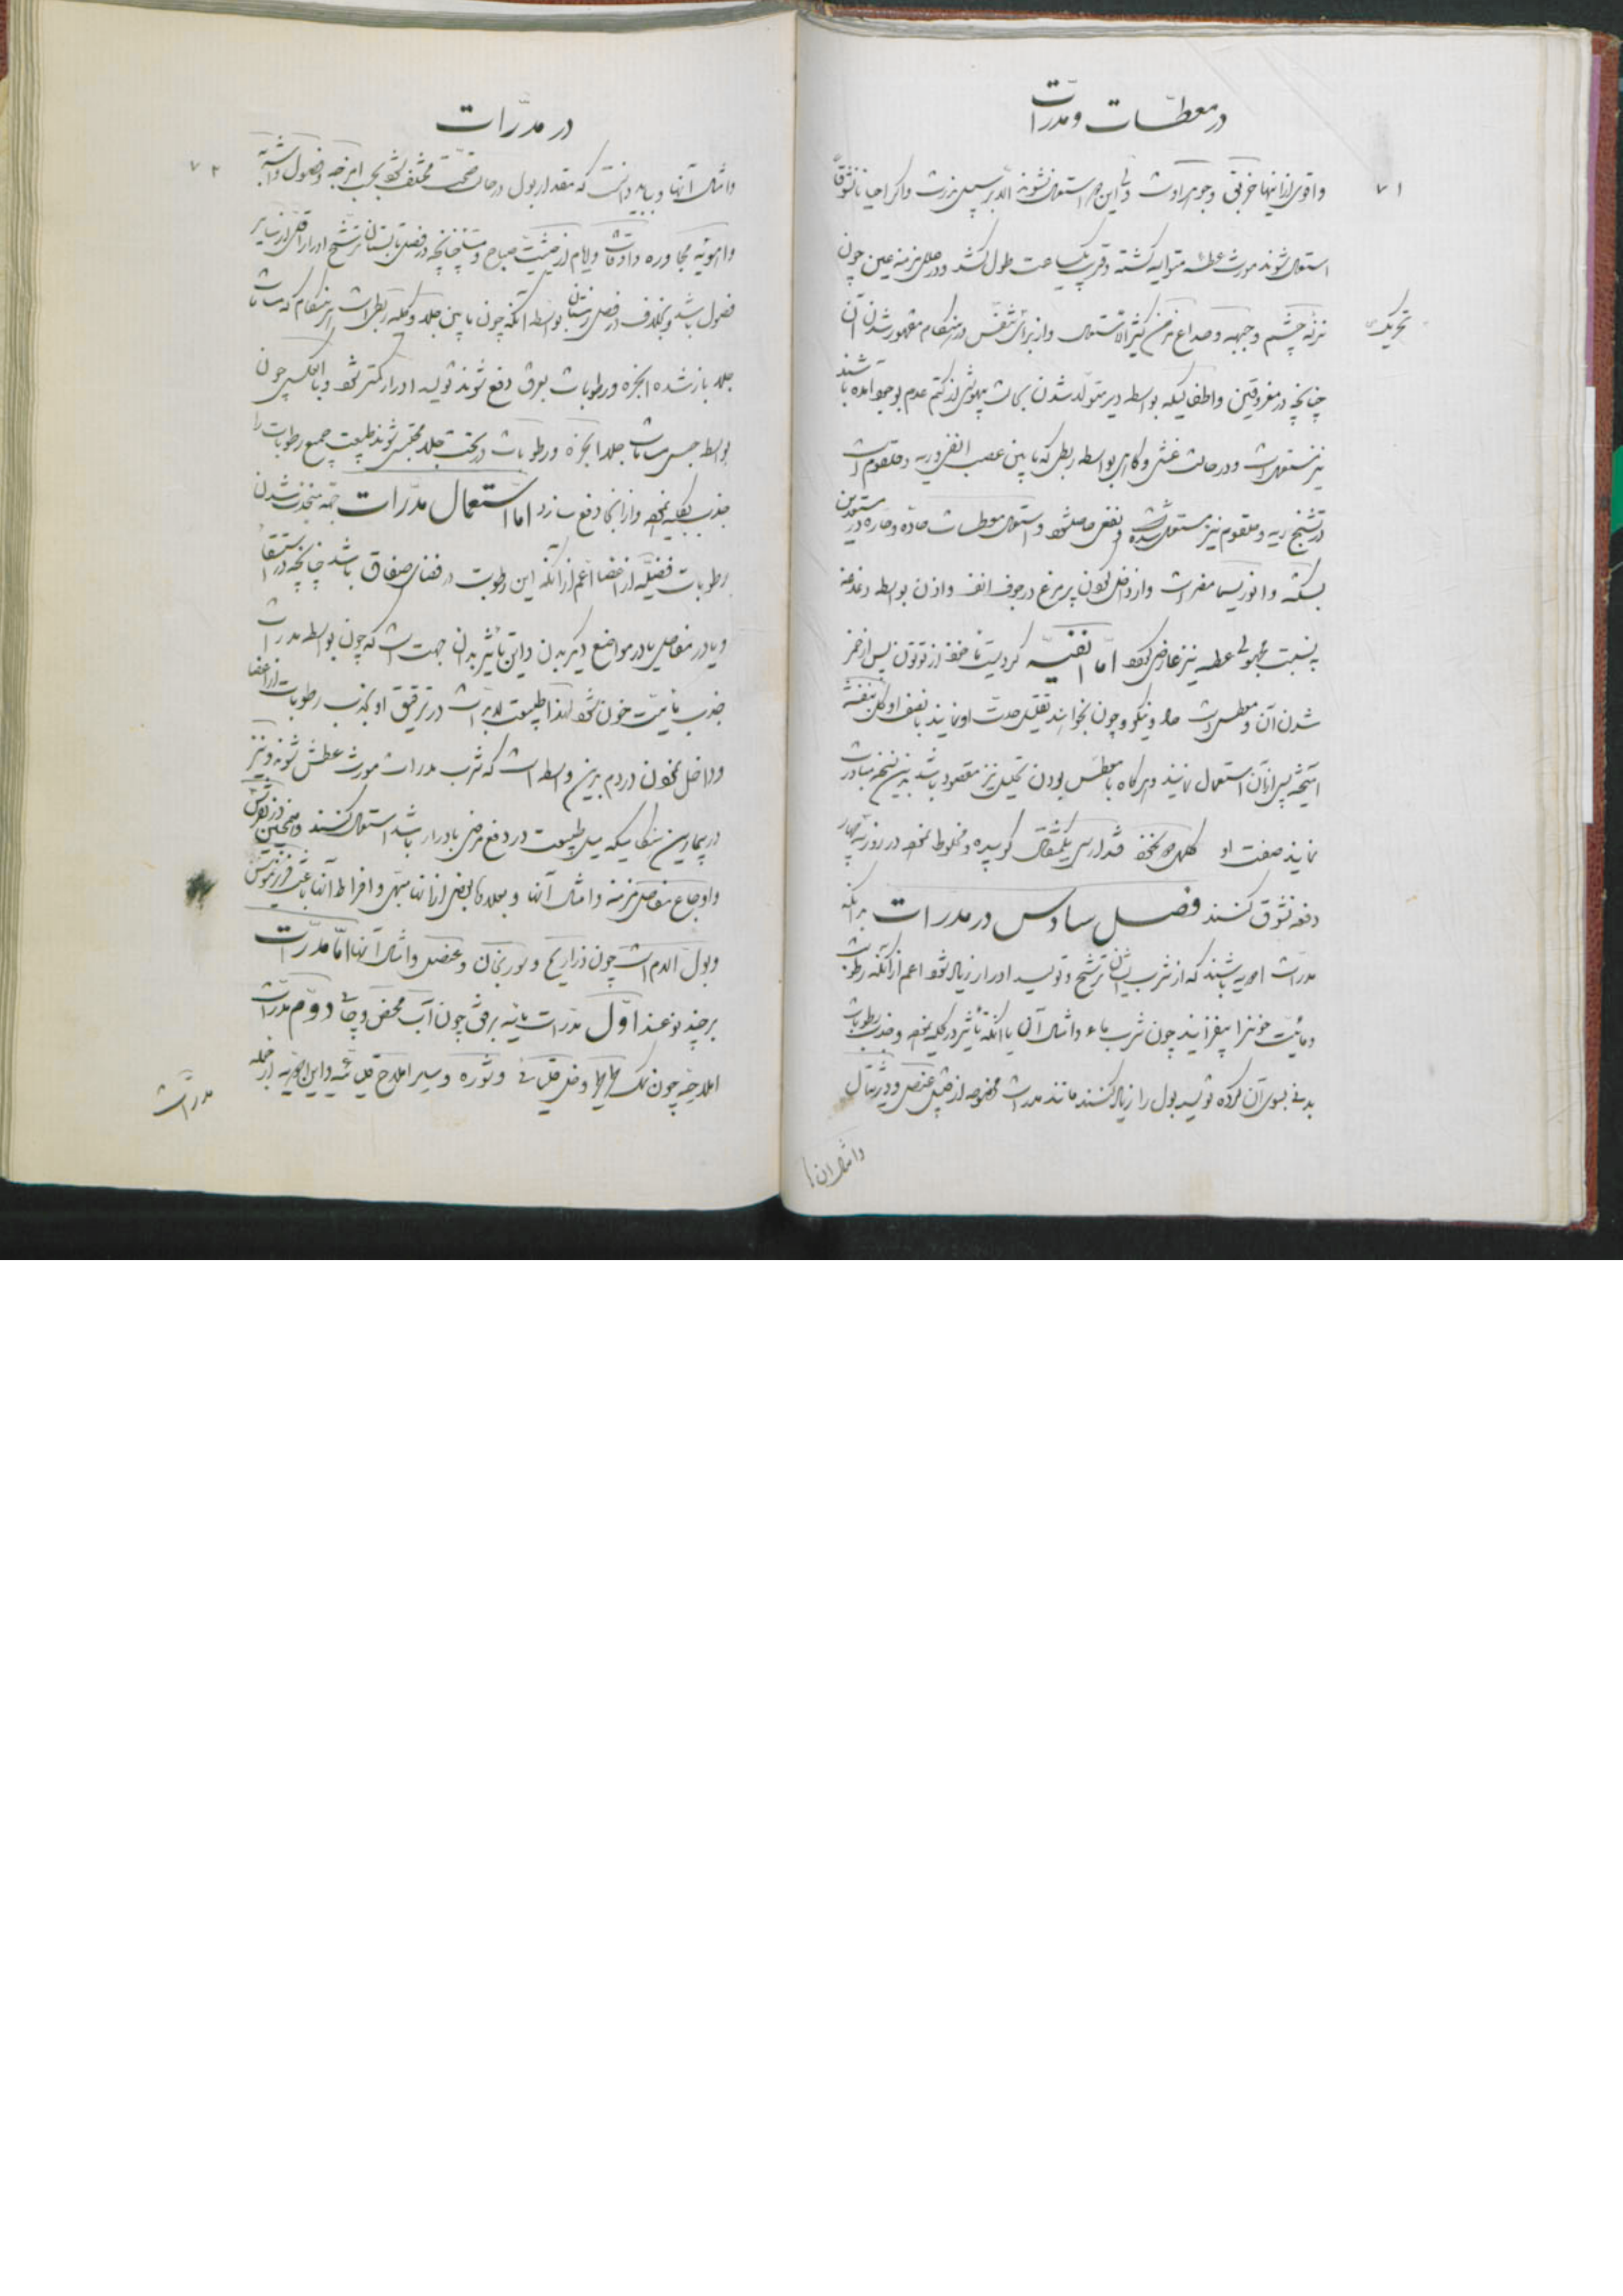 در معطسات و مدرات
۷۱
واقوی از اینها خربق و جوهر اوست ولی این هر استعمال نشوند الا بر سبیل ندرت و اگر احیانا نشوقاً
استعمال شوند مورث عطسه متوالیه گشته و قریب یکساعت طول کشد و در علل مزمنه عین چون
نزله چشم و جبهه و صداع مزمن کثیر الاستعمال و از برای تنفس در هنگام مقهور شدن آن
تحریک
چنانچه در مغروقین و اطفالیکه بواسطه دیر متولد شدن بحالت بیهوشی از کتم عدم بوجود آمده باشند
نیز مستعمل است و در حالت غشی و گاهی بواسطه ربطی که مابین عصب انف و ریه و حلقوم است
در تشنج ریه و حلقوم نیز مستعمل شده و نفع حاصل شود و استعمال معطسات حاده و حاره در مستعدین
بسکته و انوریسما مضر است و از داخل نمودن پر مرغ در جوف انف و اذن بواسطه دغدغه
بنسبت مجهولی عطسه نیز عارض گردد اما انفیه گردیست متخذ از توتون پس از تخمر
شدن آن و معطس است حاد و نیکو و چون بخواهند تقلیل حدت او نمایند با نصف او گل بنفشه
آمیخته پس از آن استعمال نمایند و هرگاه با معطس بودن تحلیل نیز مقصود باشد بدین نسخه مبادرت
نمایند صفت او کلمل نخود قند ارسی یکمثقال کوبیده و مخلوط نموده در روز سه چهار
دفعه نشوق کنند فصل سادس در مدرات بدانکه
مدرات ادویه باشند که از شرب ایشان ترشح و تولید ادرار زیاد شود اعم از آنکه رطوبت
و مائیت خون را بیفزایند چون شرب ماء و امثال آن یا آنکه تأثیر در کلیه نموده و جذب رطوبات
بدنی بسوی آن کرده تولید بول را زیاد کنند مانند مدرات مخصوصه از قبیل عنصل و دیژیتال
و امثال آن
در مدرات
۷۲
و امثال آنها و باید دانست که مقدار بول در حالت صحت مختلف شود بحسب امزجه و فصول و اشربه
و اهویه مجاوره و اوقات و ایام از حیثیت صباح و مسا چنانچه در فصل تابستان ترشح ادرار اقل از سایر
فصول باشد و بخلاف در فصل زمستان بواسطه آنکه چون مابین جلد و کلیه ربطی است در هنگام که مسامات
جلد باز شده ابخره و رطوبات بعرق دفع شوند تولید ادرار کمتر شود و بالعکس چون
بواسطه حبس مسامات جلد ابخره و رطوبات در تحت جلد محتبس شوند طبیعت جمیع رطوبات را
جذب بکلیه نموده و از آنجا دفع سازد اما استعمال مدرات جهة منجذب شدن
رطوبات فضلیه از اعضا اعم از آنکه این رطوبت در فضای صفاق باشد چنانچه در استسقا
و یا در مفاصل یا در مواضع دیگر بدن و این تأثیر بدان جهت است که چون بواسطه مدرات
جذب مائیت خون شود لهذا طبیعت مدبر است در ترقیق او بجذب رطوبات از اعضا
و داخل نمودن در دم بدین واسطه است که شرب مدرات مورث عطش شوند و نیز
در بیمارئی هنگامیکه میل طبیعت در دفع مرض بادرار باشد استعمال کنند و همچنین در نقرس
و اوجاع مفاصل مزمنه و امثال آنها و بعلاوه بعضی از آنها مبهی و افراط آنها باعث فریزموس
و بول الدم است چون ذراریح و سورنجان و عنصل و امثال آنها اما مدرات
بر چند نوعند اول مدرات مائیه برفق چون آب محض و چای دوم مدرات
املاحیه چون نمک و خل قلیائی و شوره و سایر املاح قلیائیه و این ادویه از جمله
مدرات